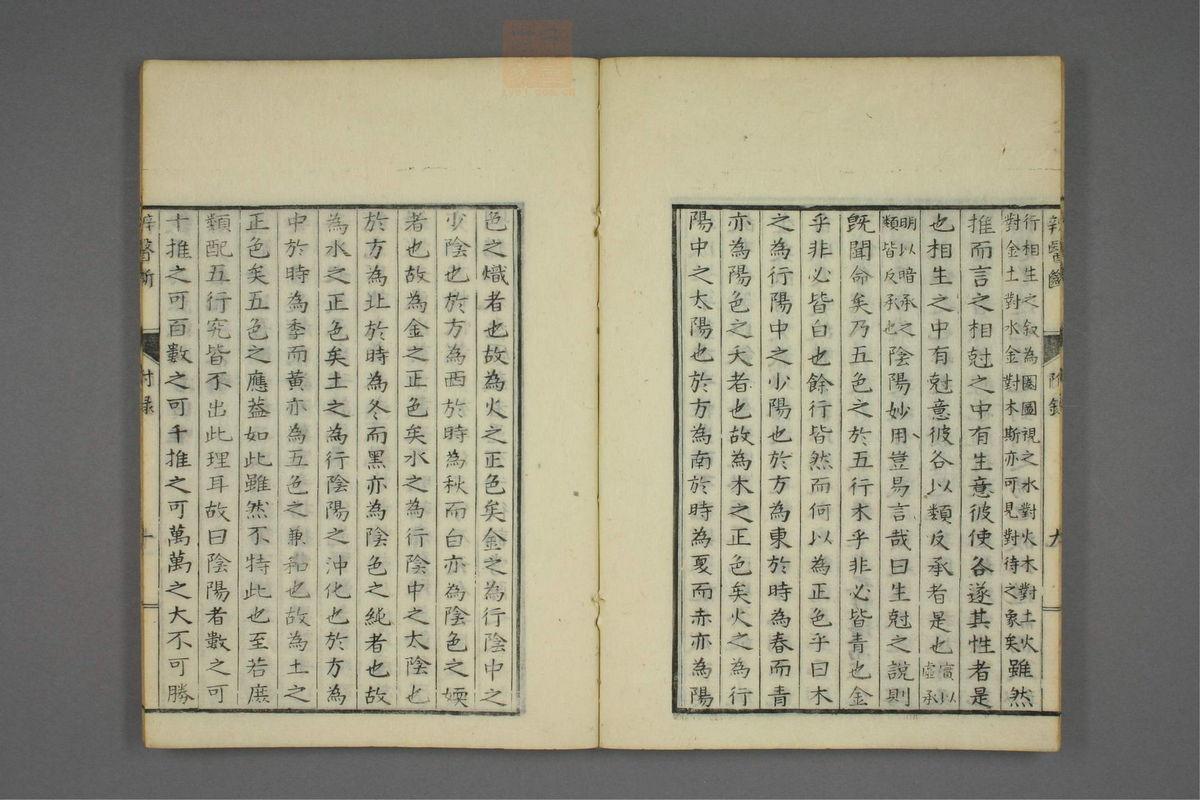 辨醫斷 附錄 九
行相生之叙為圖圖視之水對火木對土火
對金土對水金對木斯亦可見對待之象矣雖然
推而言之相尅之中有生意彼使各遂其性者是
也相生之中有尅意彼各以類反承者是也實以虛承
明以暗承之類皆反承也陰陽妙用豈易言哉曰生尅之說則
既聞命矣乃五色之於五行木乎非必皆青也金
乎非必皆白也餘行皆然而何以為正色乎曰木
之為行陽中之少陽也於方為東於時為春而青
亦為陽色之夭者也故為木之正色矣火之為行
陽中之太陽也於方為南於時為夏而赤亦為陽
色之熾者也故為火之正色矣金之為行陰中之
少陰也於方為西於時為秋而白亦為陰色之媆
者也故為金之正色矣水之為行陰中之太陰也
於方為北於時為冬而黑亦為陰色之純者也故
為水之正色矣土之為行陰陽之沖化也於方為
中於時為季而黃亦為五色之兼和也故為土之
正色矣五色之應蓋如此雖然不特此也至若庶
類配五行究皆不出此理耳故曰陰陽者數之可
十推之可百數之可千推之可萬萬之大不可勝
辨醫斷 附錄 十